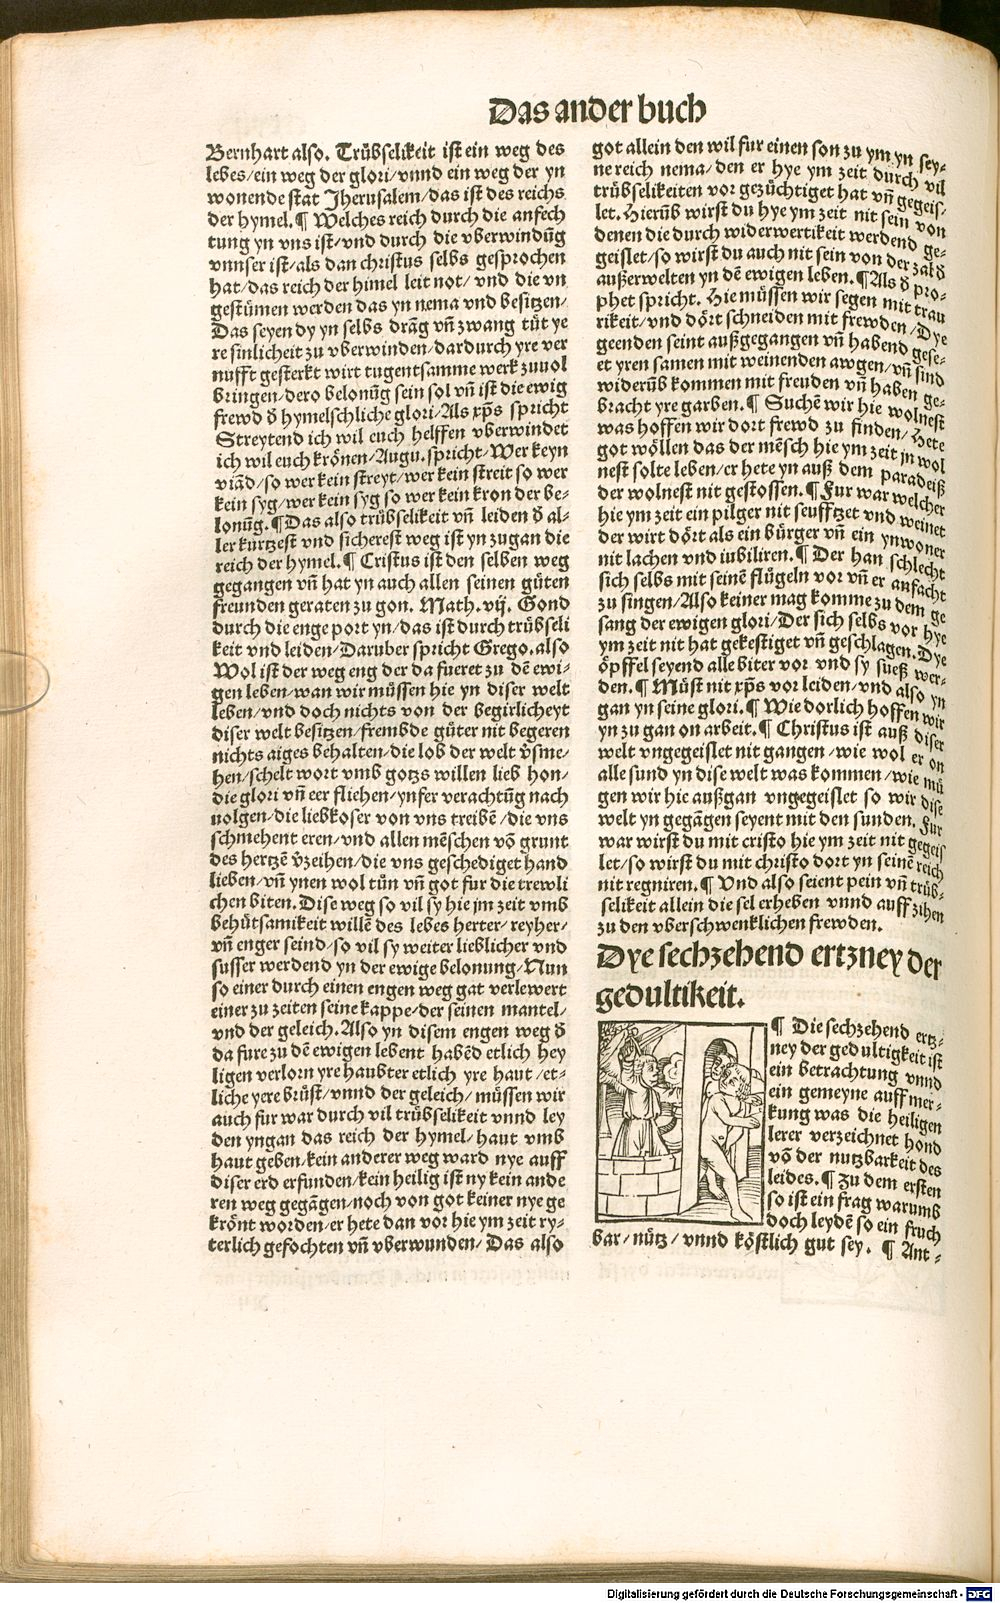 Das ander buch
Bernhart also. Trübselikeit ist ein weg des
lebes/ein weg der glori/vnnd ein weg der yn
wonende stat Jherusalem/das ist des reichs
der hymel. ¶ Welches reich durch die anfech
tung yn vns ist/vnd durch die vberwindūg
vnnser ist/als dan christus selbs gesprochen
hat/das reich der himel leit not/ vnd die vn
gestümen werden das yn nema vnd besitzen/
Das seyen dy yn selbs dräg vñ zwang tüt ye
re sinlicheit zu vberwinden/dardurch yre ver
nufft gesterkt wirt tugentsamme werk zuuol
bringen/dero belonūg sein sol vñ ist die ewig
frewd d̄ hymelschliche glori/Als xp̄s spricht
Streytend ich wil euch helffen vberwindet
ich wil euch krönen/Augu. spricht/Wer keyn
viād/so wer kein streyt/wer kein streit so wer
kein syg/wer kein syg so wer kein kron der be-
lonūg. ¶ Das also trübselikeit vñ leiden d̄ al-
ler kürtzest vnd sicherest weg ist yn zugan die
reich der hymel. ¶ Cristus ist den selben weg
gegangen vñ hat yn auch allen seinen güten
freunden geraten zu gon. Math. vij. Gond
durch die enge port yn/das ist durch trübseli
keit vnd leiden/Daruber spricht Grego. also
Wol ist der weg eng der da fueret zu dē ewi-
gen leben/wan wir müssen hie yn diser welt
leben/vnd doch nichts von der begirlicheyt
diser welt besitzen/frembde güter nit begeren
nichts aiges behalten/die lob der welt v̄sme-
hen/schelt wort vmb gotzs willen lieb hon/
die glori vñ eer fliehen/ynfer verachtūg nach
uolgen/die liebkoser von vns treibē/die vns
schmehent eren/vnd allen mēschen vō grunt
des hertzē v̄zeihen/die vns geschediget hand
lieben/vñ ynen wol tün vñ got fur die trewli
chen biten. Dise weg so vil sy hie jm zeit vmb
behütsamikeit willē des lebes herter/reyher/
vñ enger seind/so vil sy weiter lieblicher vnd
susser werdend yn der ewige belonung/Nun
so einer durch einen engen weg gat verlewert
einer zu zeiten seine kappe/der seinen mantel/
vnd der geleich. Also yn disem engen weg d̄
da fure zu dē ewigen lebent habēd etlich hey
ligen verlorn yre haubter etlich yre haut/et-
liche yere brüst/vnnd der geleich/müssen wir
auch fur war durch vil trübselikeit vnnd ley
den yngan das reich der hymel/haut vmb
haut geben/kein anderer weg ward nye auff
diser erd erfunden/kein heilig ist ny kein ande
ren weg gegāgen/noch von got keiner nye ge
krönt worden/er hete dan vor hie ym zeit ry-
terlich gefochten vñ vberwunden/Das also
got allein den wil fur einen son zu ym yn sey-
ne reich nema/den er hye ym zeit durch vil
trübselikeiten vor gezüchtiget hat vñ gegeis-
let. Hierūb wirst du hye ym zeit nit sein von
denen die durch widerwertikeit werdend ge-
geislet/so wirst du auch nit sein von der zal d̄
außerwelten yn dē ewigen leben. ¶ Als d̄ pro-
phet spricht. Hie müssen wir segen mit trau
rikeit/vnd dört schneiden mit frewden/Dye
geenden seint außgegangen vñ habend gese-
et yren samen mit weinenden awgen/vñ sind
widerūb kommen mit freuden vñ haben ge-
bracht yre garben. ¶ Suchē wir hie wolnest
was hoffen wir dort frewd zu finden/Hete
got wöllen das der mēsch hie ym zeit jn wol
nest solte leben/er hete yn auß dem paradeiß
der wolnest nit gestossen. ¶ Fur war welcher
hie ym zeit ein pilger nit seufftzet vnd weinet
der wirt dört als ein bürger vñ ein ynwoner
nit lachen vnd iubiliren. ¶ Der han schlecht
sich selbs mit seinē flügeln vor vñ er anfacht
zu singen/Also keiner mag komme zu dem ge
sang der ewigen glori/Der sich selbs vor hye
ym zeit nit hat gekestiget vñ geschlagen. Dye
öpffel seyend alle biter vor vnd sy sueß wer-
den. ¶ Müst nit xp̄s vor leiden/vnd also yn
gan yn seine glori. ¶ Wie dorlich hoffen wir
yn zu gan on arbeit. ¶ Christus ist auß diser
welt vngegeislet nit gangen/wie wol er on
alle sund yn dise welt was kommen/wie mü
gen wir hie außgan vngegeislet so wir dise
welt yn gegāgen seyent mit den sunden. Fur
war wirst du mit cristo hie ym zeit nit gegeis
let/so wirst du mit christo dort yn seinē reich
nit regniren. ¶ Vnd also seient pein vñ trüb-
selikeit allein die sel erheben vnnd auff zihen
zu den vberschwenklichen frewden.
Dye sechzehend ertzney der
gedultikeit.
¶ Die sechzehend ertz-
ney der gedultigkeit ist
ein betrachtung vnnd
ein gemeyne auff mer-
kung was die heiligen
lerer verzeichnet hond
vō der nutzbarkeit des
leides. ¶ Zu dem ersten
so ist ein frag warumb
doch leydē so ein fruch
bar/nütz/vnnd köstlich gut sey. ¶ Ant-
Digitalisierung gefördert durch die Deutsche Forschungsgemeinschaft - DFG